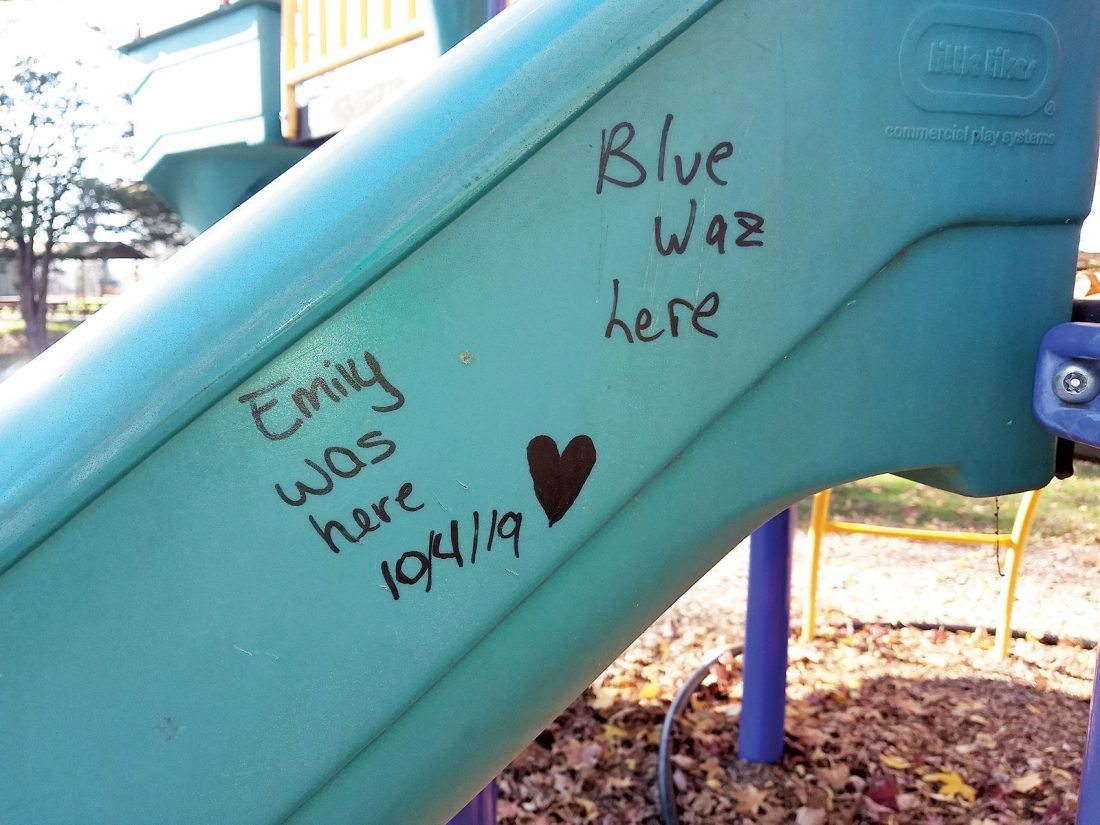 little tikes
®
commercial play systems
Blue
Waz
here
Emily
was
here
10/4/19